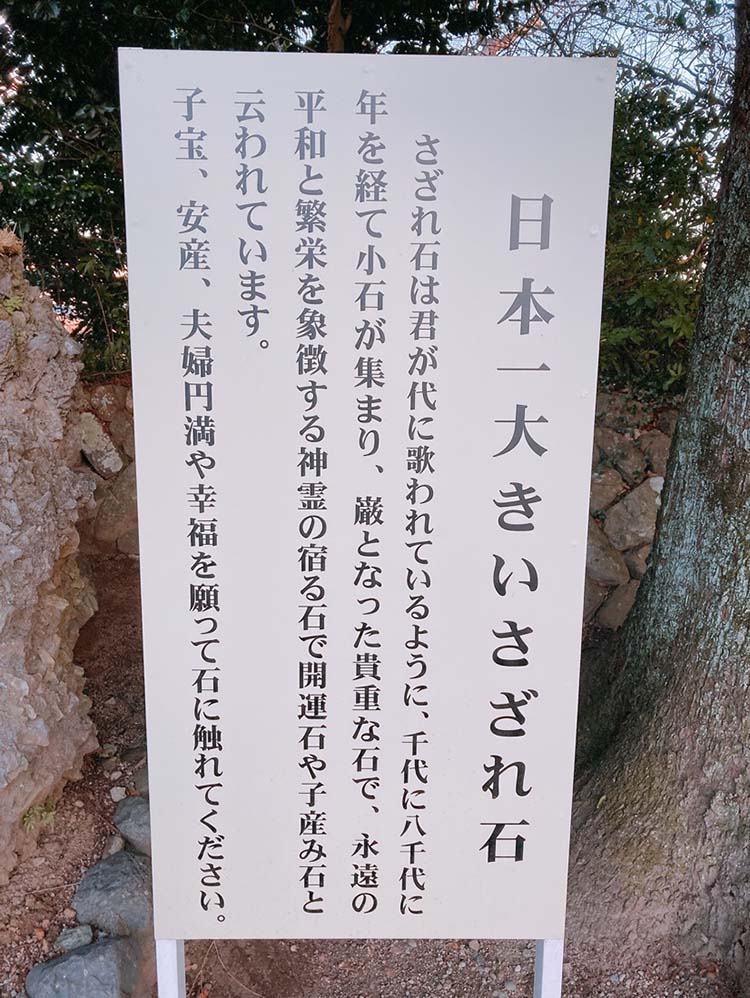 日本一大きいさざれ石
さざれ石は君が代に歌われているように、千代に八千代に
年を経て小石が集まり、巌となった貴重な石で、永遠の
平和と繁栄を象徴する神霊の宿る石で開運石や子産み石と
云われています。
子宝、安産、夫婦円満や幸福を願って石に触れてください。